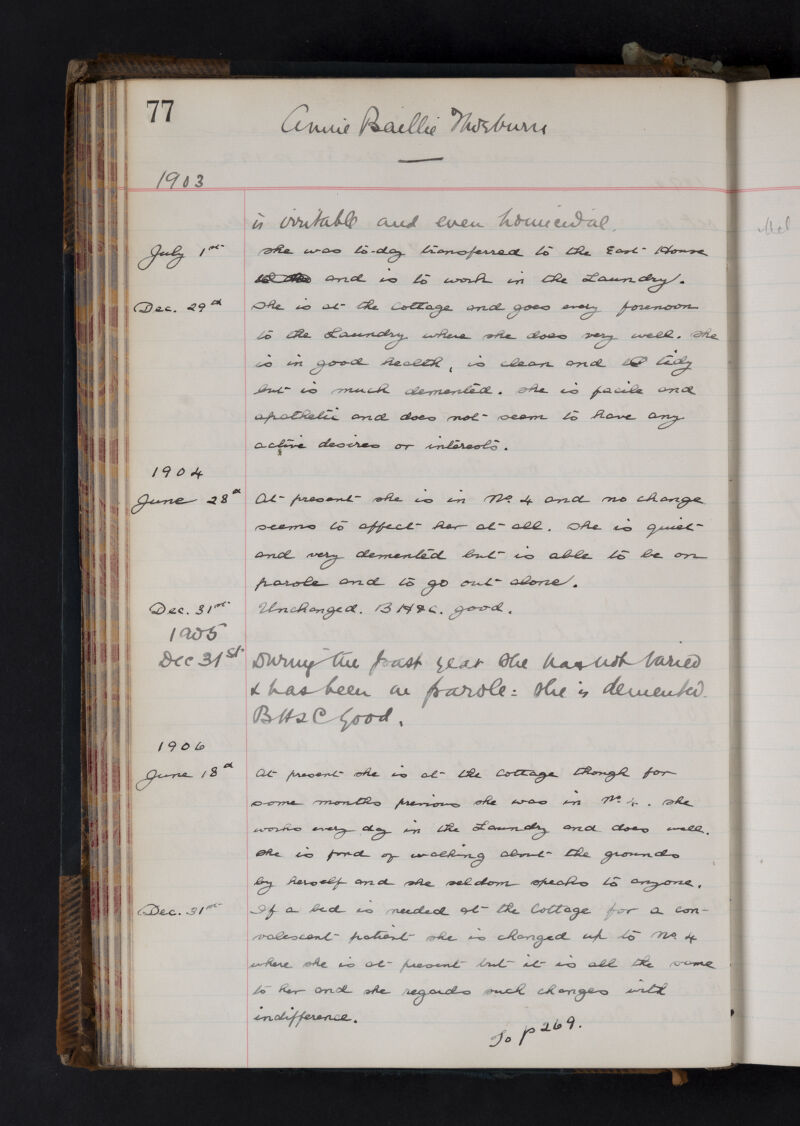 77
Annie Baillie Thorburn
1903
is irritable and even homicidal.
July 1st She was to-day transferred to the East House
and is to work in the Laundry.
Dec. 29th She is at the Cottage and goes every forenoon
to the Laundry where she does very well. She
is in good health, is clean and tidy
but is much demented. She is facile and
apathetic and does not seem to have any
active desires or interests.
1904
June 28th At present she is in No. 4 and no change
seems to affect her at all. She is quiet
and very demented but is able to be on
parole and to go out alone.
Dec. 31st Unchanged. B H & C. good.
1905
Dec 31st During the past year she has not varied
& has been on parole: she is demented.
B H & C Good.
1906
June 18th At present she is at the Cottage though for
some months previous she was in No. 4. She
works every day in the Laundry and does well.
She is fond of walking about the grounds
by herself and she seldom speaks to anyone.
Dec. 31st If a bed is needed at the Cottage for a con-
valescent patient she is changed up to No. 4
where she is at present but it is all the same
to her and she regards such changes with
indifference.
To p 269.